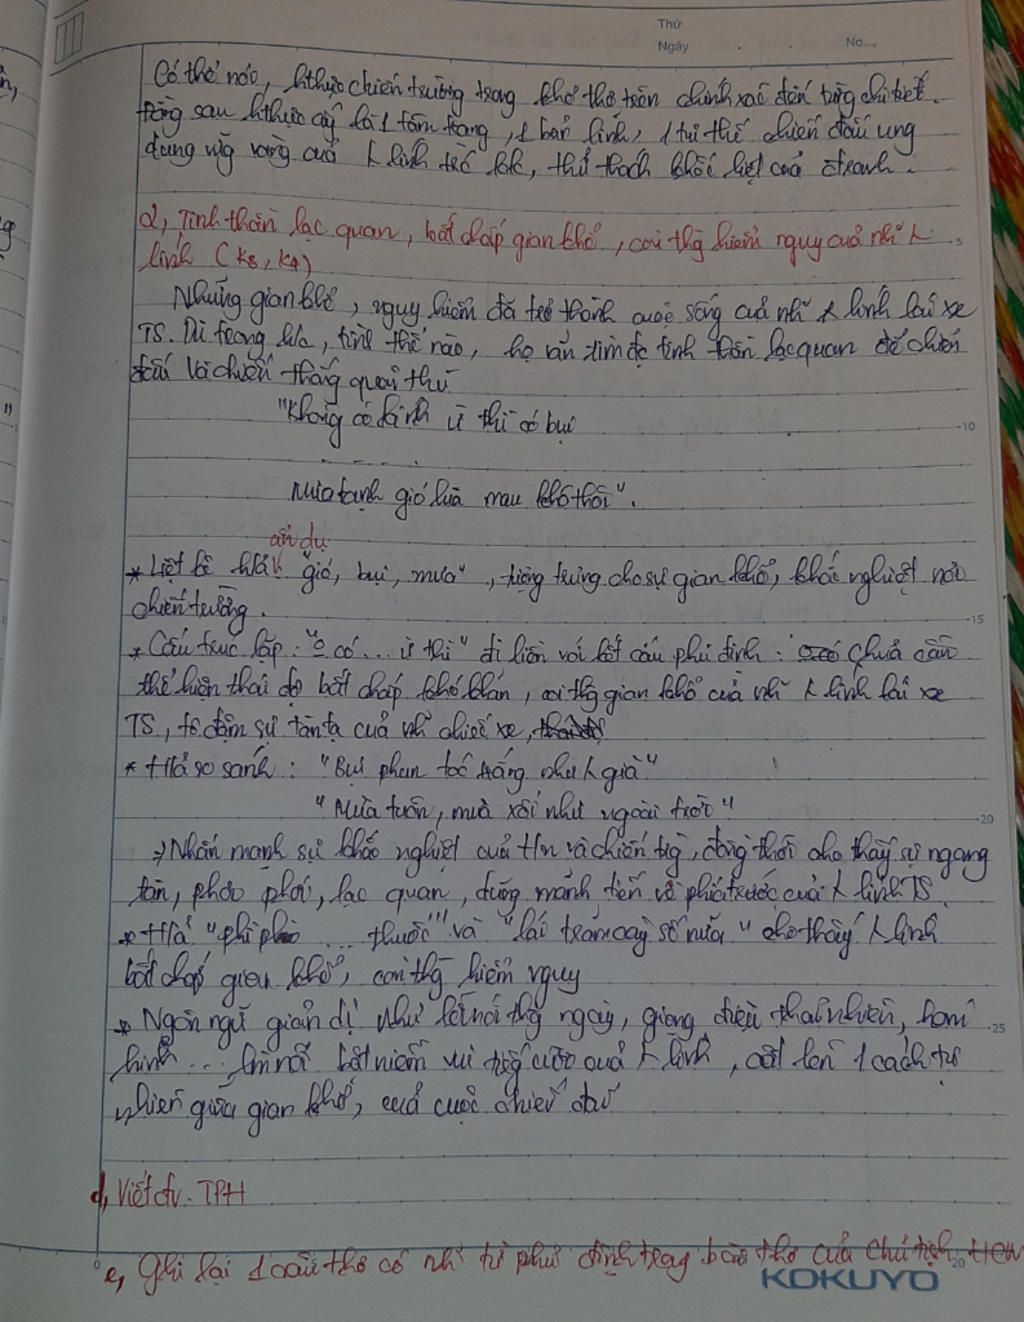 Thứ
Ngày . . No...
Có thể nói, hthực chiến trường trong khổ thơ trên chính xác đến từng chi tiết.
Đằng sau hthực ấy là 1 tâm trạng, 1 bản lĩnh, 1 tư thế chiến đấu ung
dung vững vàng của linh trc kk, thử thách khốc liệt của ctranh.
2, Tinh thần lạc quan, bất chấp gian khổ, coi thg hiểm nguy của nhữ
lính (K3, K4)
Những gian khổ, nguy hiểm đã trở thành cuộc sống của nhữ lính lái xe
TS. Dù trong h/c, tình thế nào, họ vẫn tìm đc tinh thần lạc quan để chiến
đấu và chiến thắng quân thù
"Không có kính ừ thì có bụi
Mưa tạnh gió lùa mau khô thôi".
ẩn dụ
* Liệt kê "gió, bụi, mưa", tượng trưng cho sự gian khổ, khắc nghiệt nơi
chiến trường.
* Cấu trúc lặp: "o có... ừ thì" đi liền với kết cấu phủ định: chưa cần
thể hiện thái độ bất chấp khó khăn, coi thg gian khổ của nhữ lính lái xe
TS, tô đậm sự tàn tạ của nhữ chiếc xe,
* H/ả so sánh: "Bụi phun tóc trắng như già"
"Mưa tuôn, mưa xối như ngoài trời"
=> Nhấn mạnh sự khắc nghiệt của t/n và chiến tg, đồng thời cho thấy sự ngang
tàn, phơi phới, lạc quan, dũng mãnh tiến về phía trước của lính TS.
* H/ả "phì phèo ... thuốc" và "lái trăm cây số nữa" cho thấy lính
bất chấp gian khổ, coi thg hiểm nguy
* Ngôn ngữ giản dị như lời nói thg ngày, giọng điệu thản nhiên, hóm
hỉnh ... làm nổi bật niềm vui tiếng cười của lính, cất lên 1 cách tự
nhiên giữa gian khổ, của cuộc chiến đấu
d, Viết đv. TPH
e, Ghi lại 1 câu thơ có nhữ từ phủ định trong bài thơ của Chủ tịch HCM
KOKUYO